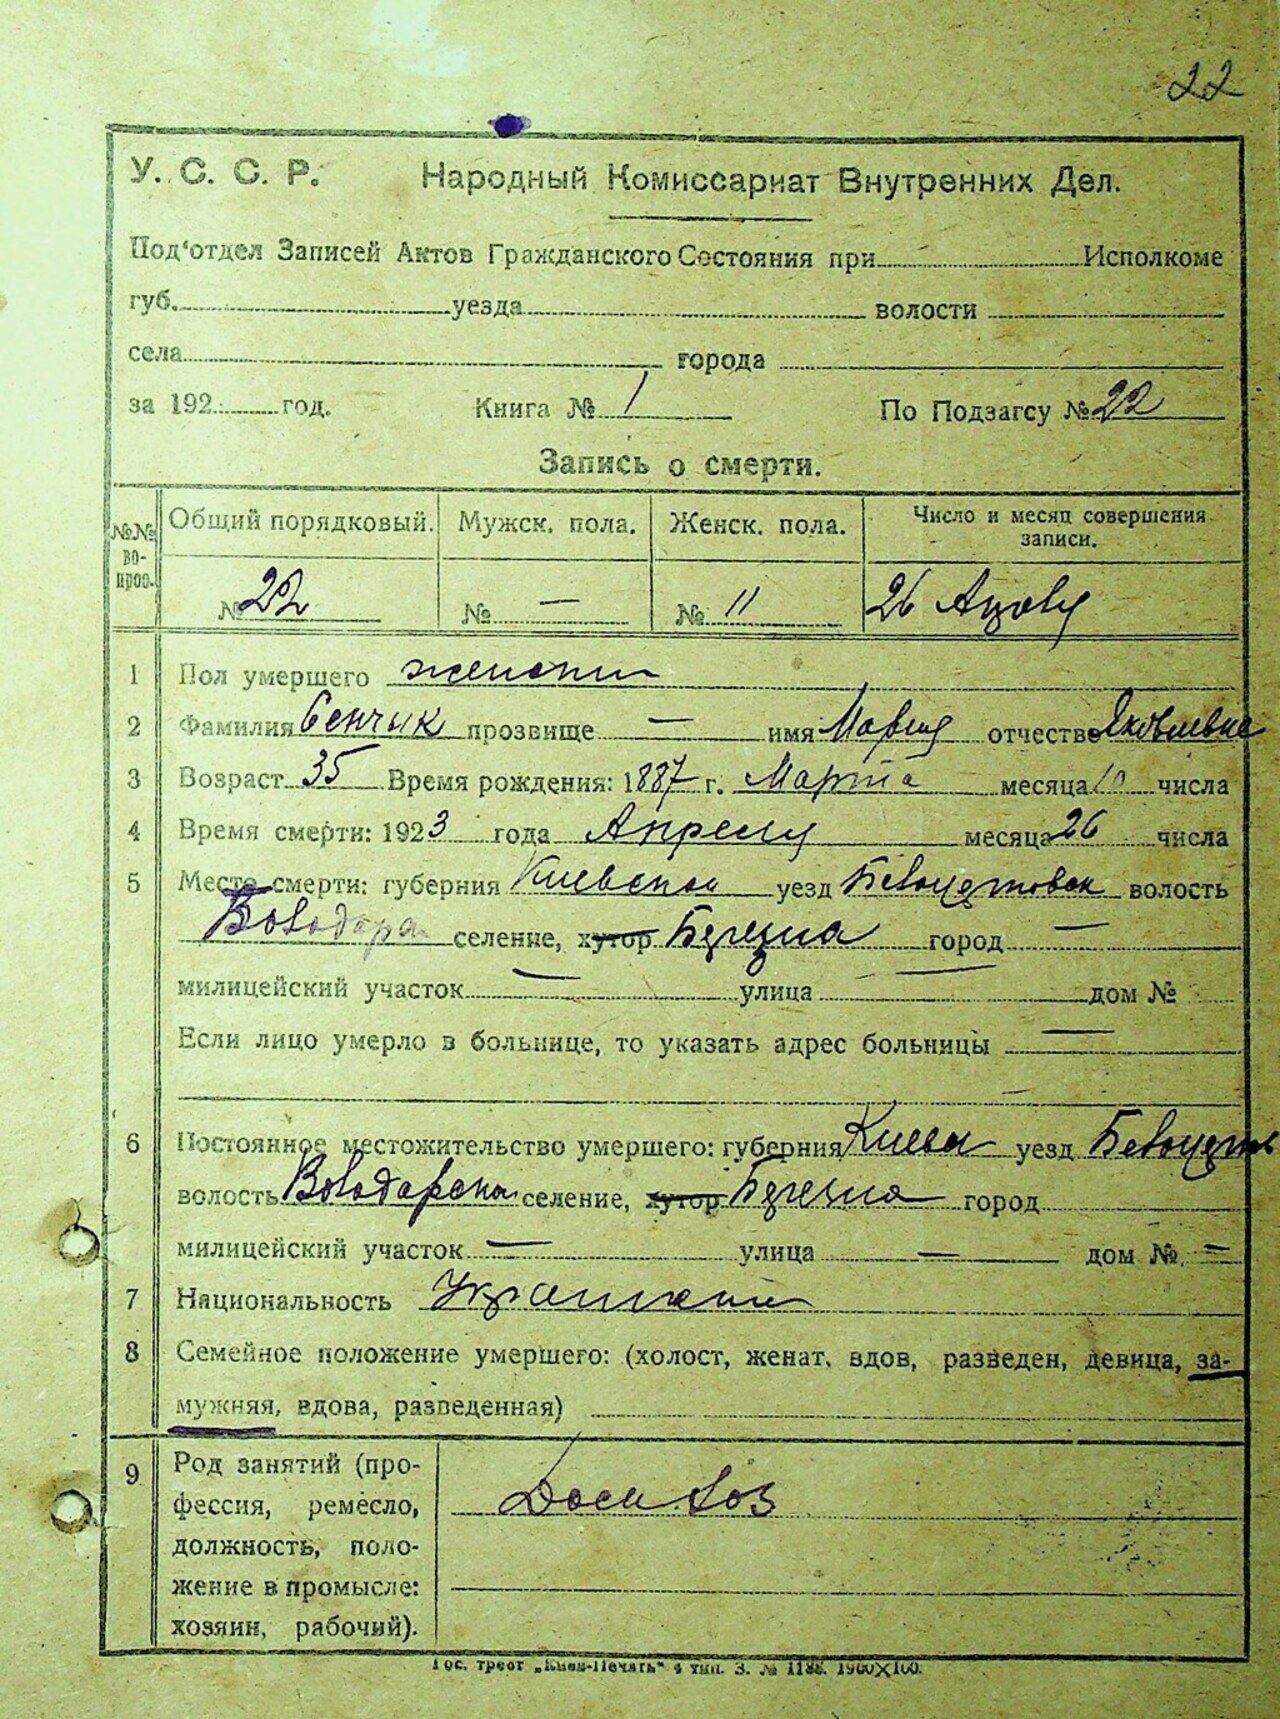 22
У. С. С. Р. Народный Комиссариат Внутренних Дел.
Под‘отдел Записей Актов Гражданского Состояния при Исполкоме
губ. уезда волости
села города
за 192 год. Книга № 1 По Подзагсу № 22
Запись о смерти.
№№ вопрос. Общий порядковый. Мужск. пола. Женск. пола. Число и месяц совершения записи.
№ 22 № — № 11 26
1 Пол умершего женский
2 Фамилия Сенчик прозвище — имя Мария отчество Яковлевна
3 Возраст 35 Время рождения: 1887 г. Марта месяца 10 числа
4 Время смерти: 1923 года Апреля месяца 26 числа
5 Место смерти: губерния Киевской уезд Белоцерковск волость
Володар селение, хутор Березна город —
милицейский участок — улица — дом №
Если лицо умерло в больнице, то указать адрес больницы —
6 Постоянное местожительство умершего: губерния Киевск уезд Белоцерков
волость Володарска селение, хутор Березна город
милицейский участок — улица — дом № —
7 Национальность
8 Семейное положение умершего: (холост, женат, вдов, разведен, девица, за-
мужняя, вдова, разведенная)
9 Род занятий (про-
фессия, ремесло,
должность, поло-
жение в промысле:
хозяин, рабочий).
Гос. трест „Киев-Печать“ 4 тип. З. №